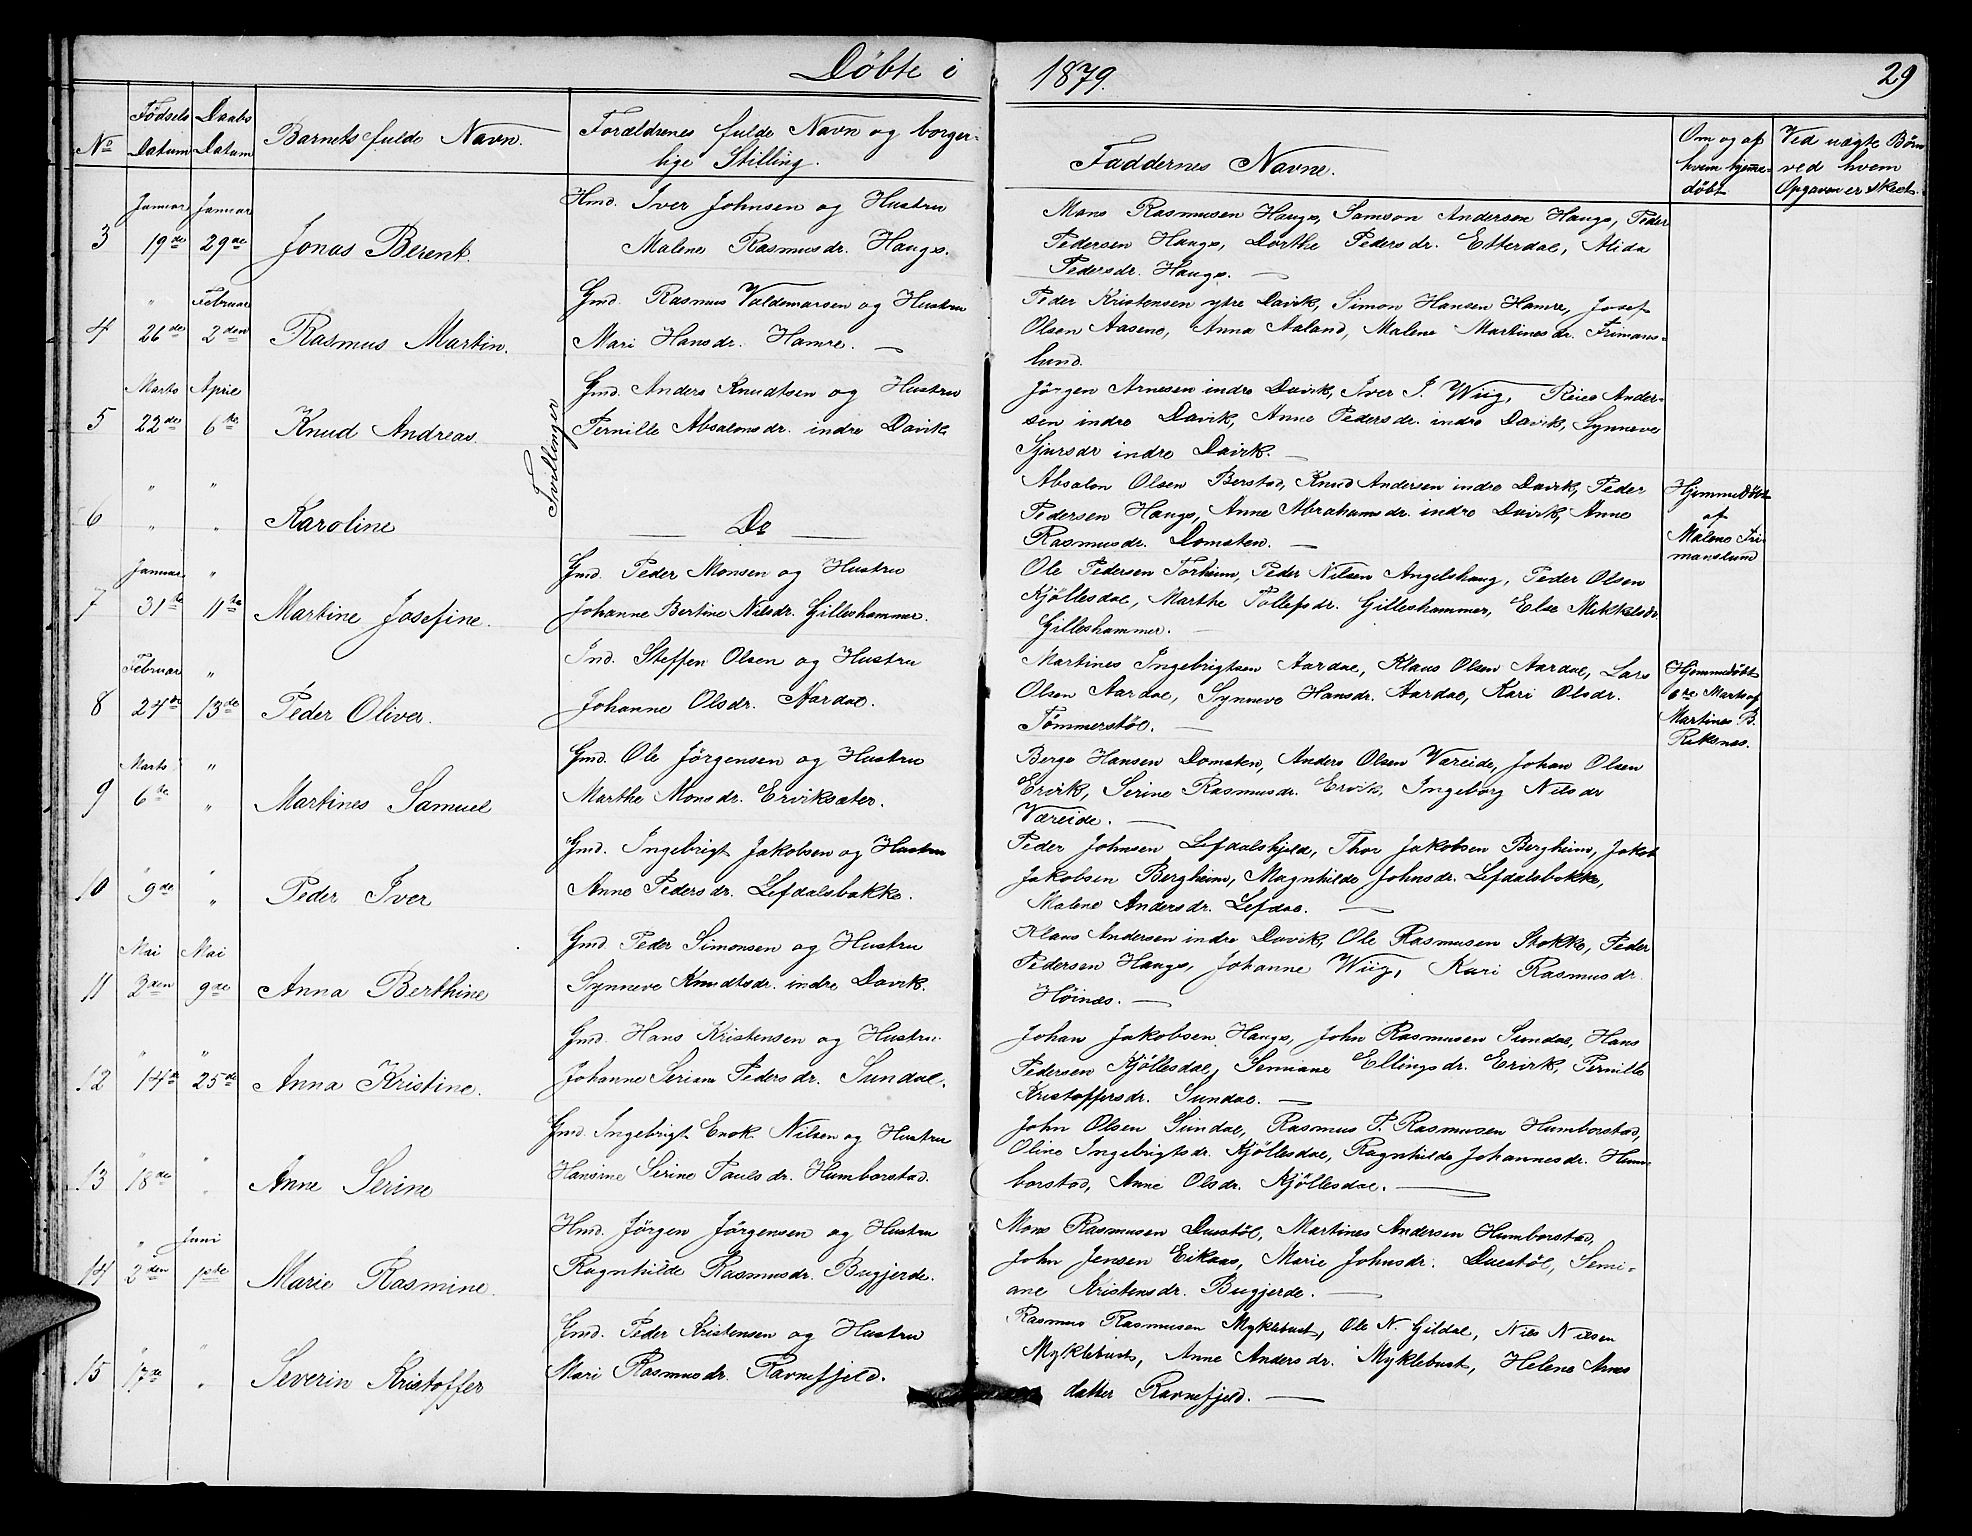 Døbte i 1879. 29
No
Fødsels Datum
Daabs Datum
Barnets fulde Navn.
Forældrenes fulde Navn og borger-
lige Stilling.
Faddernes Navne.
Om og af
hvem hjemme-
døbt
Ved uægte Børn
ved hvem
Opgaven er skeet.
3
Januar 19de
Januar 29de
Jonas Berent.
Hmd. Iver Johnsen og Hustru
Malene Rasmusdr. Hauge.
Mons Rasmusen Hauge, Samson Andersen Hauge, Peder
Pedersen Hauge, Dorthe Pedersdr. Etterdal, Alida
Pedersdr. Hauge. —
4
" 26de
Februar 2den
Rasmus Martin.
Gmd. Rasmus Valdemarsen og Hustru
Mari Hansdr. Hamre. —
Peder Kristensen ytre Davik, Simon Hansen Hamre, Josef
Olsen Aasene, Anna Aaland, Malene Martinesdr. Frimans-
lund.
5
Marts 22de
April 6te
Knud Andreas.
Tvillinger
Gmd. Anders Knudtsen og Hustru
Pernille Absalonsdr. indre Davik
Jørgen Arnesen indre Davik, Iver J. Wiig, Reier Ander-
sen indre Davik, Anne Pedersdr. indre Davik, Synneve
Sjursdr indre Davik. —
6
" "
" "
Karoline
— Do —
Absalon Olsen Berstad, Knud Andersen indre Davik, Peder
Pedersen Hauge, Anne Abrahamsdr. indre Davik, Anne
Rasmusdr. Domsten. —
Hjemmedøbt
af
Malene Fri-
manslund
7
Januar 31te
" 11te
Martine Josefine.
Gmd. Peder Monsen og Hustru
Johanne Bertine Nilsdr. Gilleshammer.
Ole Pedersen Torheim, Peder Nilsen Angelshaug, Peder Olsen
Kjøllesdal, Marthe Tollefsdr. Gilleshammer, Else Mikkelsdr.
Gilleshammer. —
8
Februar 24de
" 13de
Peder Oliver.
Ind. Steffen Olsen og Hustru
Johanne Olsdr. Aardal.
Martines Ingebrigtsen Aardal, Klaus Olsen Aardal, Lars
Olsen Aardal, Synneve Hansdr. Aardal, Kari Olsdr.
Tømmerstøl. —
Hjemmedøbt
Marts af
Martines B.
9
Marts 6te
" "
Martines Samuel
Gmd. Ole Jørgensen og Hustru
Marthe Monsdr. Erviksæter.
Berge Hansen Domsten, Anders Olsen Væreide, Johan Olsen
Ervik, Serine Rasmusdr. Ervik, Ingeborg Nilsdr
Væreide. —
10
" 9de
" "
Peder Iver
Gmd. Ingebrigt Jakobsen og Hustru
Anne Pedersdr. Lefdalsbakke.
Peder Johnsen Lefdalskjeld, Thor Jakobsen Bergheim, Jakob
Jakobsen Bergheim, Magnhilde Johnsdr. Lefdalsbakke,
Malene Andersdr. Lefdal. —
11
Mai 3den
Mai 9de
Anna Berthine
Gmd. Peder Simonsen og Hustru
Synneve Knudtsdr. indre Davik.
Klaus Andersen indre Davik, Ole Rasmusen Stokke, Peder
Pedersen Hauge, Johanne Wiig, Kari Rasmusdr.
Høines. —
12
" 14de
" 25de
Anna Kristine.
Gmd. Hans Kristensen og Hustru
Johanne Seriane Pedersdr. Sundal.
Johan Jakobsen Hauge, John Rasmusen Sundal, Hans
Pedersen Kjøllesdal, Semiane Ellingsdr. Ervik, Pernille
Kristoffersdr. Sundal. —
13
" 18de
" "
Anne Serine
Gmd. Ingebrigt Enok Nilsen og Hustru
Hansine Serine Paulsdr. Humborstad.
John Olsen Sundal, Rasmus P. Rasmusen Humborstad,
Oline Ingebrigtsdr. Kjøllesdal, Ragnhilde Johannesdr. Hum-
borstad, Anne Olsdr. Kjøllesdal. —
14
" 2den
Juni 1ste
Marie Rasmine.
Hmd. Jørgen Jørgensen og Hustru
Ragnhilde Rasmusdr. Bugjerde.
Mons Rasmusen Duestøl, Martines Andersen Humborstad,
John Jensen Eikaas, Marie Johnsdr. Duestøl, Semi-
ane Kristensdr. Bugjerde. —
15
" 17de
" "
Severin Kristoffer
Gmd. Peder Kristensen og Hustru
Mari Rasmusdr. Ravnefjeld.
Rasmus Rasmusen Myklebust, Ole N. Gildal, Nils Nilsen
Myklebust, Anne Andersdr. Myklebust, Helene Arne
datter Ravnefjeld. —